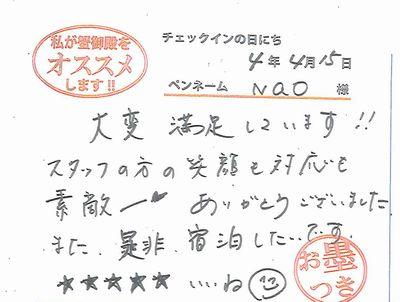 私が蟹御殿を
オススメ
します!!
チェックインの日にち
4年4月15日
ペンネーム nao 様
大変 満足しています!!
スタッフの方の笑顔も対応も
素敵ー♥ ありがとうございました
また、是非、宿泊したいです。
★★★★★ いいね
お墨
つき